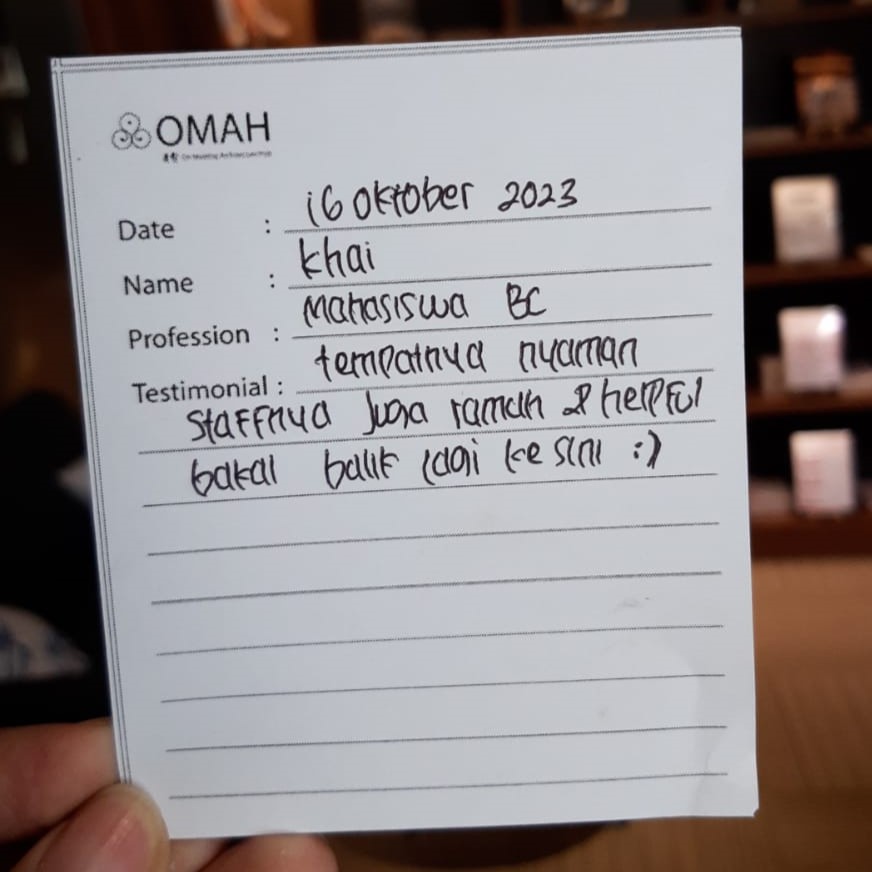 OMAH
Date : 16 Oktober 2023
Name : khai
Profession : Mahasiswa BC
Testimonial : tempatnya nyaman
staffnya juga ramah & helpful
bakal balik lagi ke sini :)